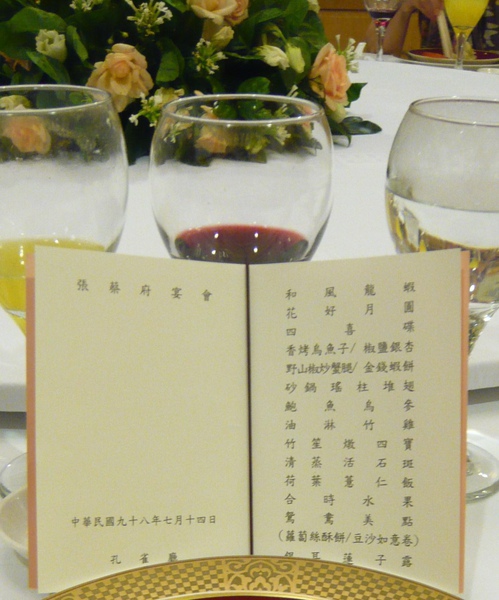 張蔡府宴會
中華民國九十八年七月十四日
孔雀廳
和風龍蝦
花好月圓
四喜碟
香烤烏魚子/椒鹽銀杏
野山椒炒蟹腿/金錢蝦餅
砂鍋瑤柱堆翅
鮑魚烏參
油淋竹雞
竹笙燉四寶
清蒸活石斑
荷葉薏仁飯
合時水果
鴛鴦美點
(蘿蔔絲酥餅/豆沙如意卷)
銀耳蓮子露